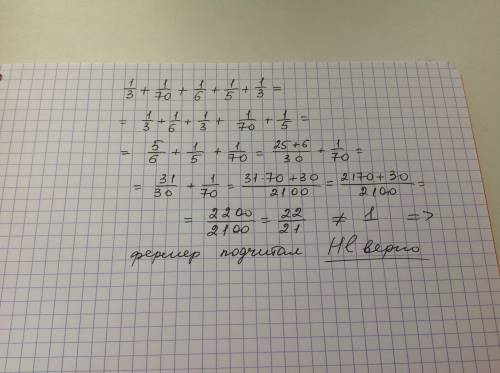 1/3 + 1/70 + 1/6 + 1/5 + 1/3 =
= 1/3 + 1/6 + 1/3 + 1/70 + 1/5 =
= 5/6 + 1/5 + 1/70 = 25+6/30 + 1/70 =
= 31/30 + 1/70 = 31·70+30/2100 = 2170+30/2100 =
= 2200/2100 = 22/21 ≠ 1 =>
фермер подчитал Не верно